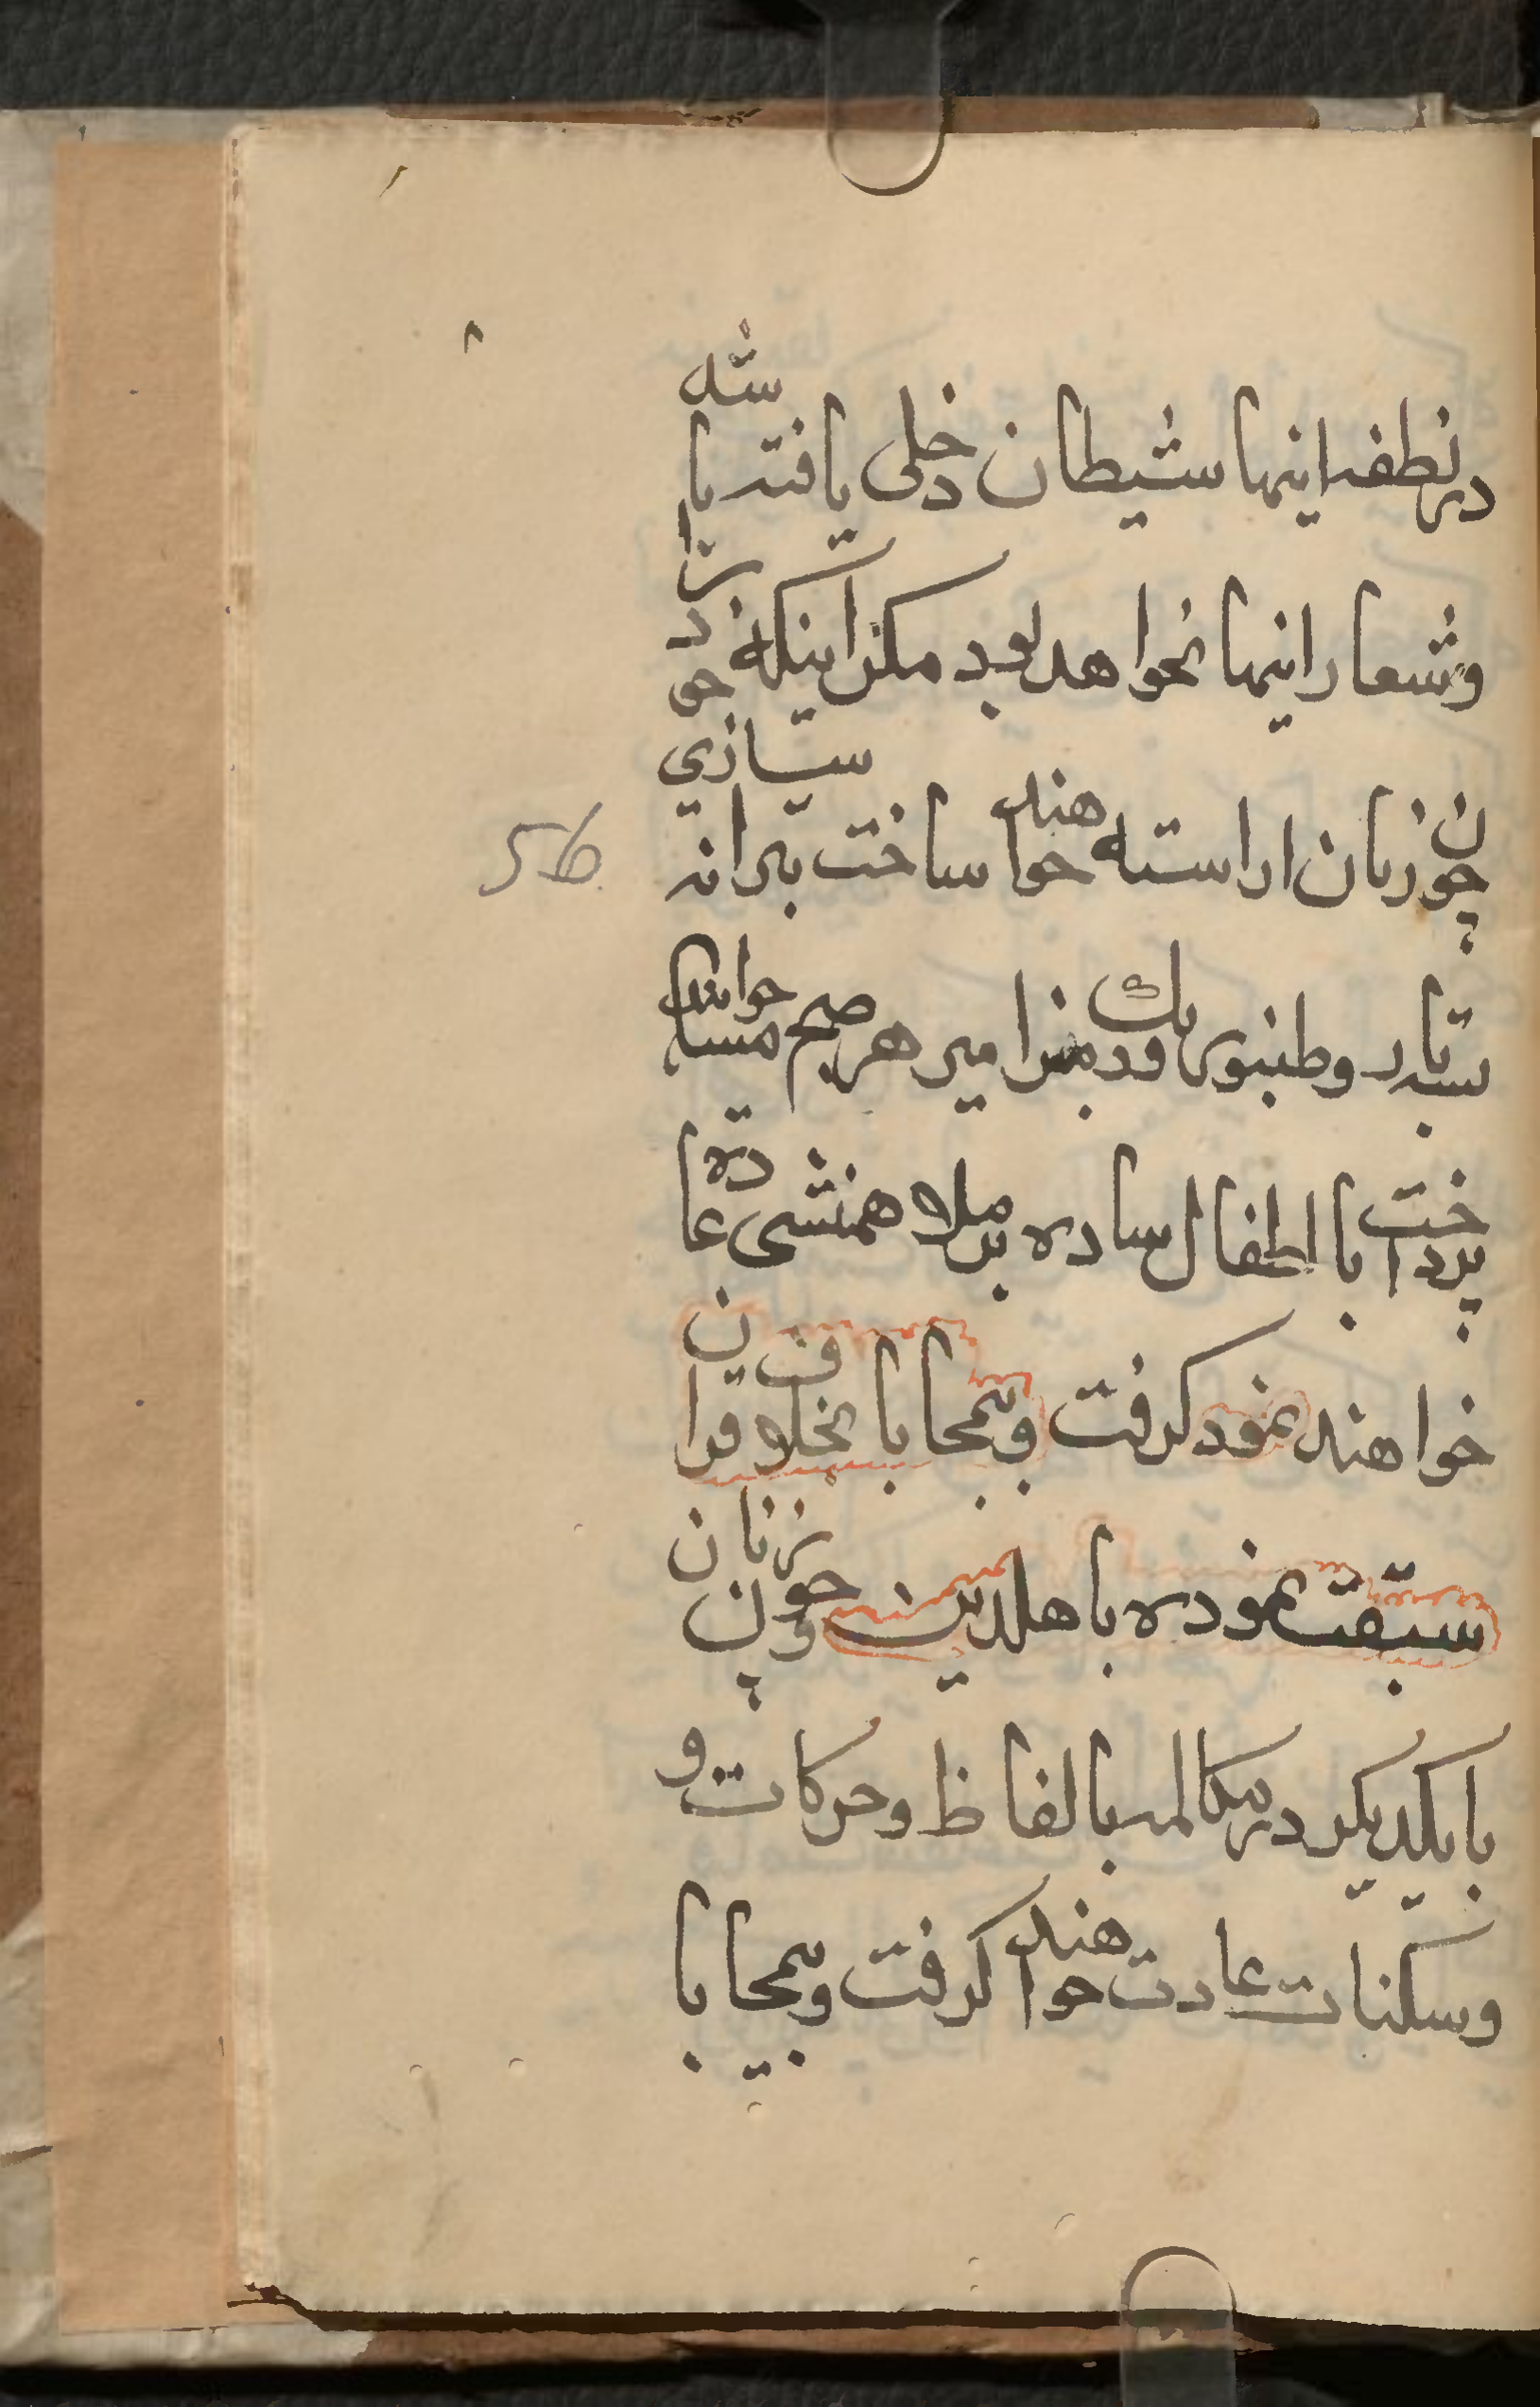 در نطفه اینها شیطان دخلی یافته باشد
وشعار اینها نخواهد بود مکر اینکه خود را
چون زنان اراسته خواهند ساخت بترانه سازی
بتار وطنبور یک ودبمزامیر هر صبح مسا خوانند
پرداخت با اطفال ساده برملا همنشی عادة
خواهند نمود کرفت وبیمحابا بخلاف قران
سبقت نموده باهل دین وچون زنان
بایکدیکر در مکالمه بالفاظ وحرکات و
وسکنات عادت خواهند کرفت وبیمحابا
56